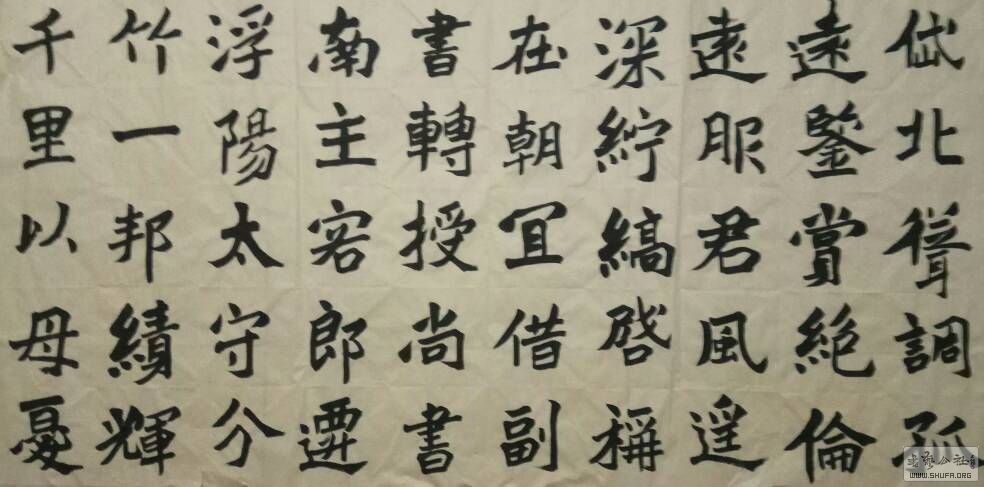 岱北聳調孤
遠鑒賞絶倫
遠服君風遥
深紵縞啓稱
在朝冝借副
書轉授尚書
南主客郎遷
浮陽太守分
竹一邦績輝
千里以母憂
书艺公社
WWW.SHUFA.ORG